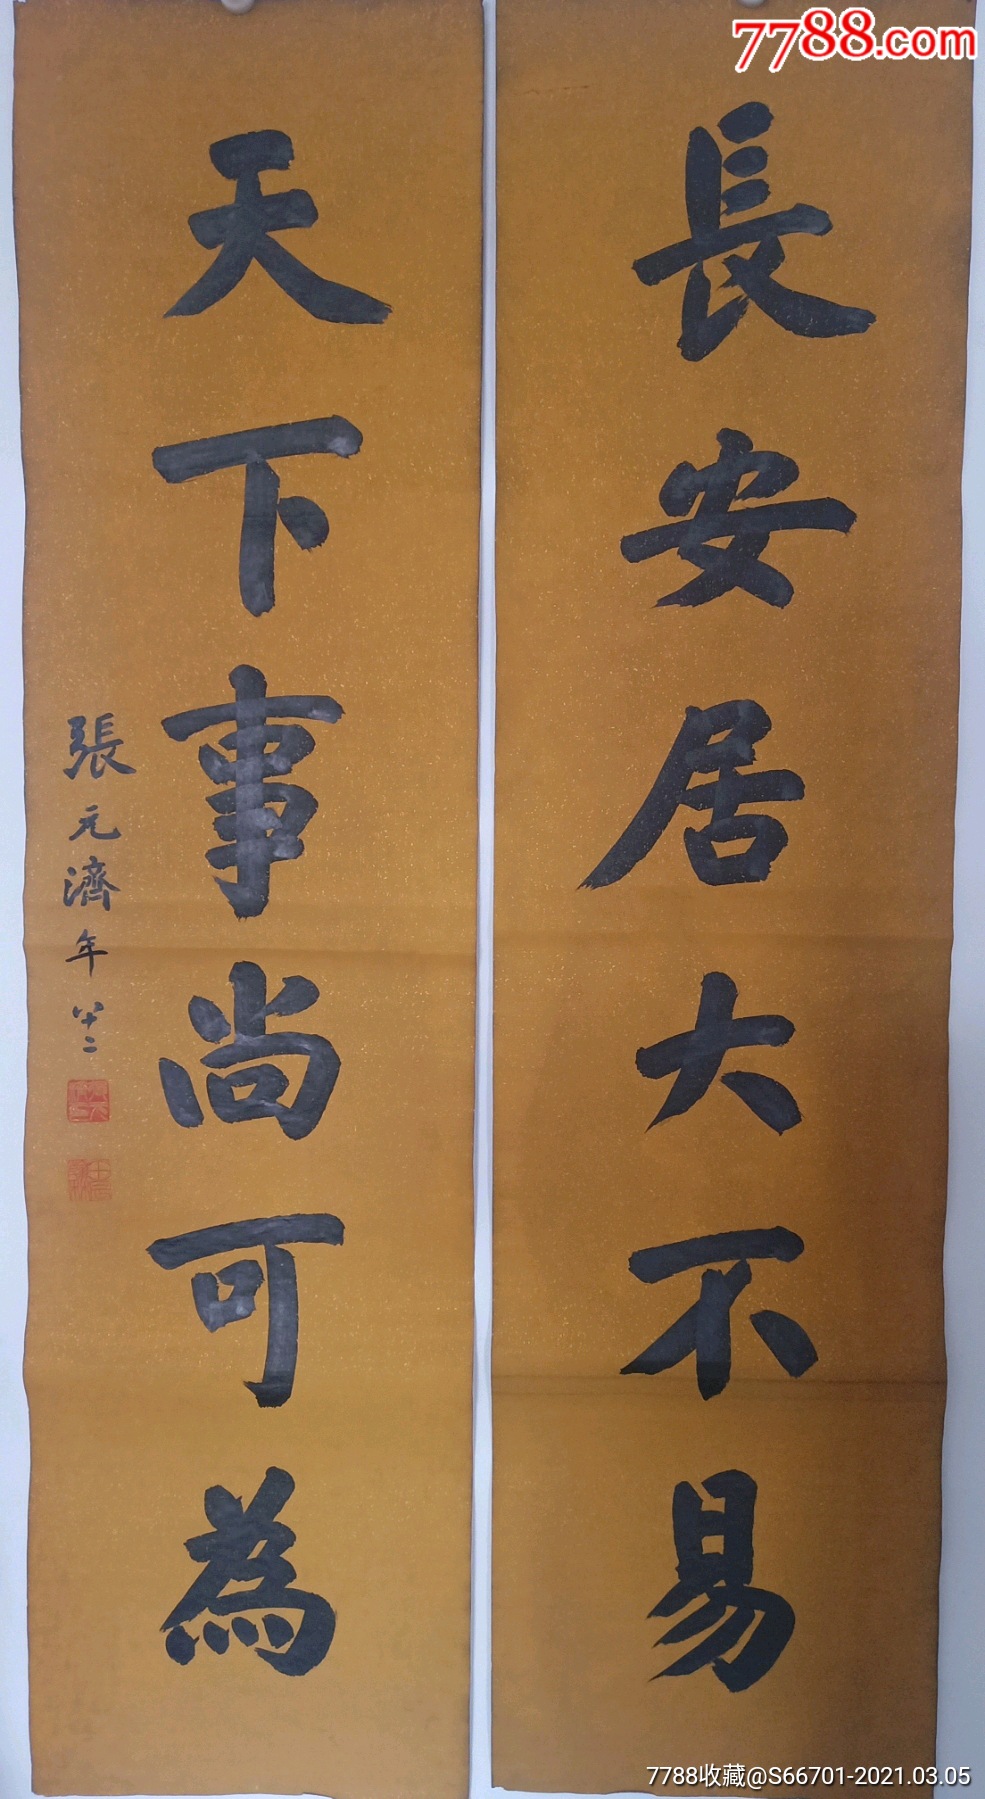 7788.com
長安居大不易
天下事尚可為
張元濟年八十二
7788收藏@S66701-2021.03.05